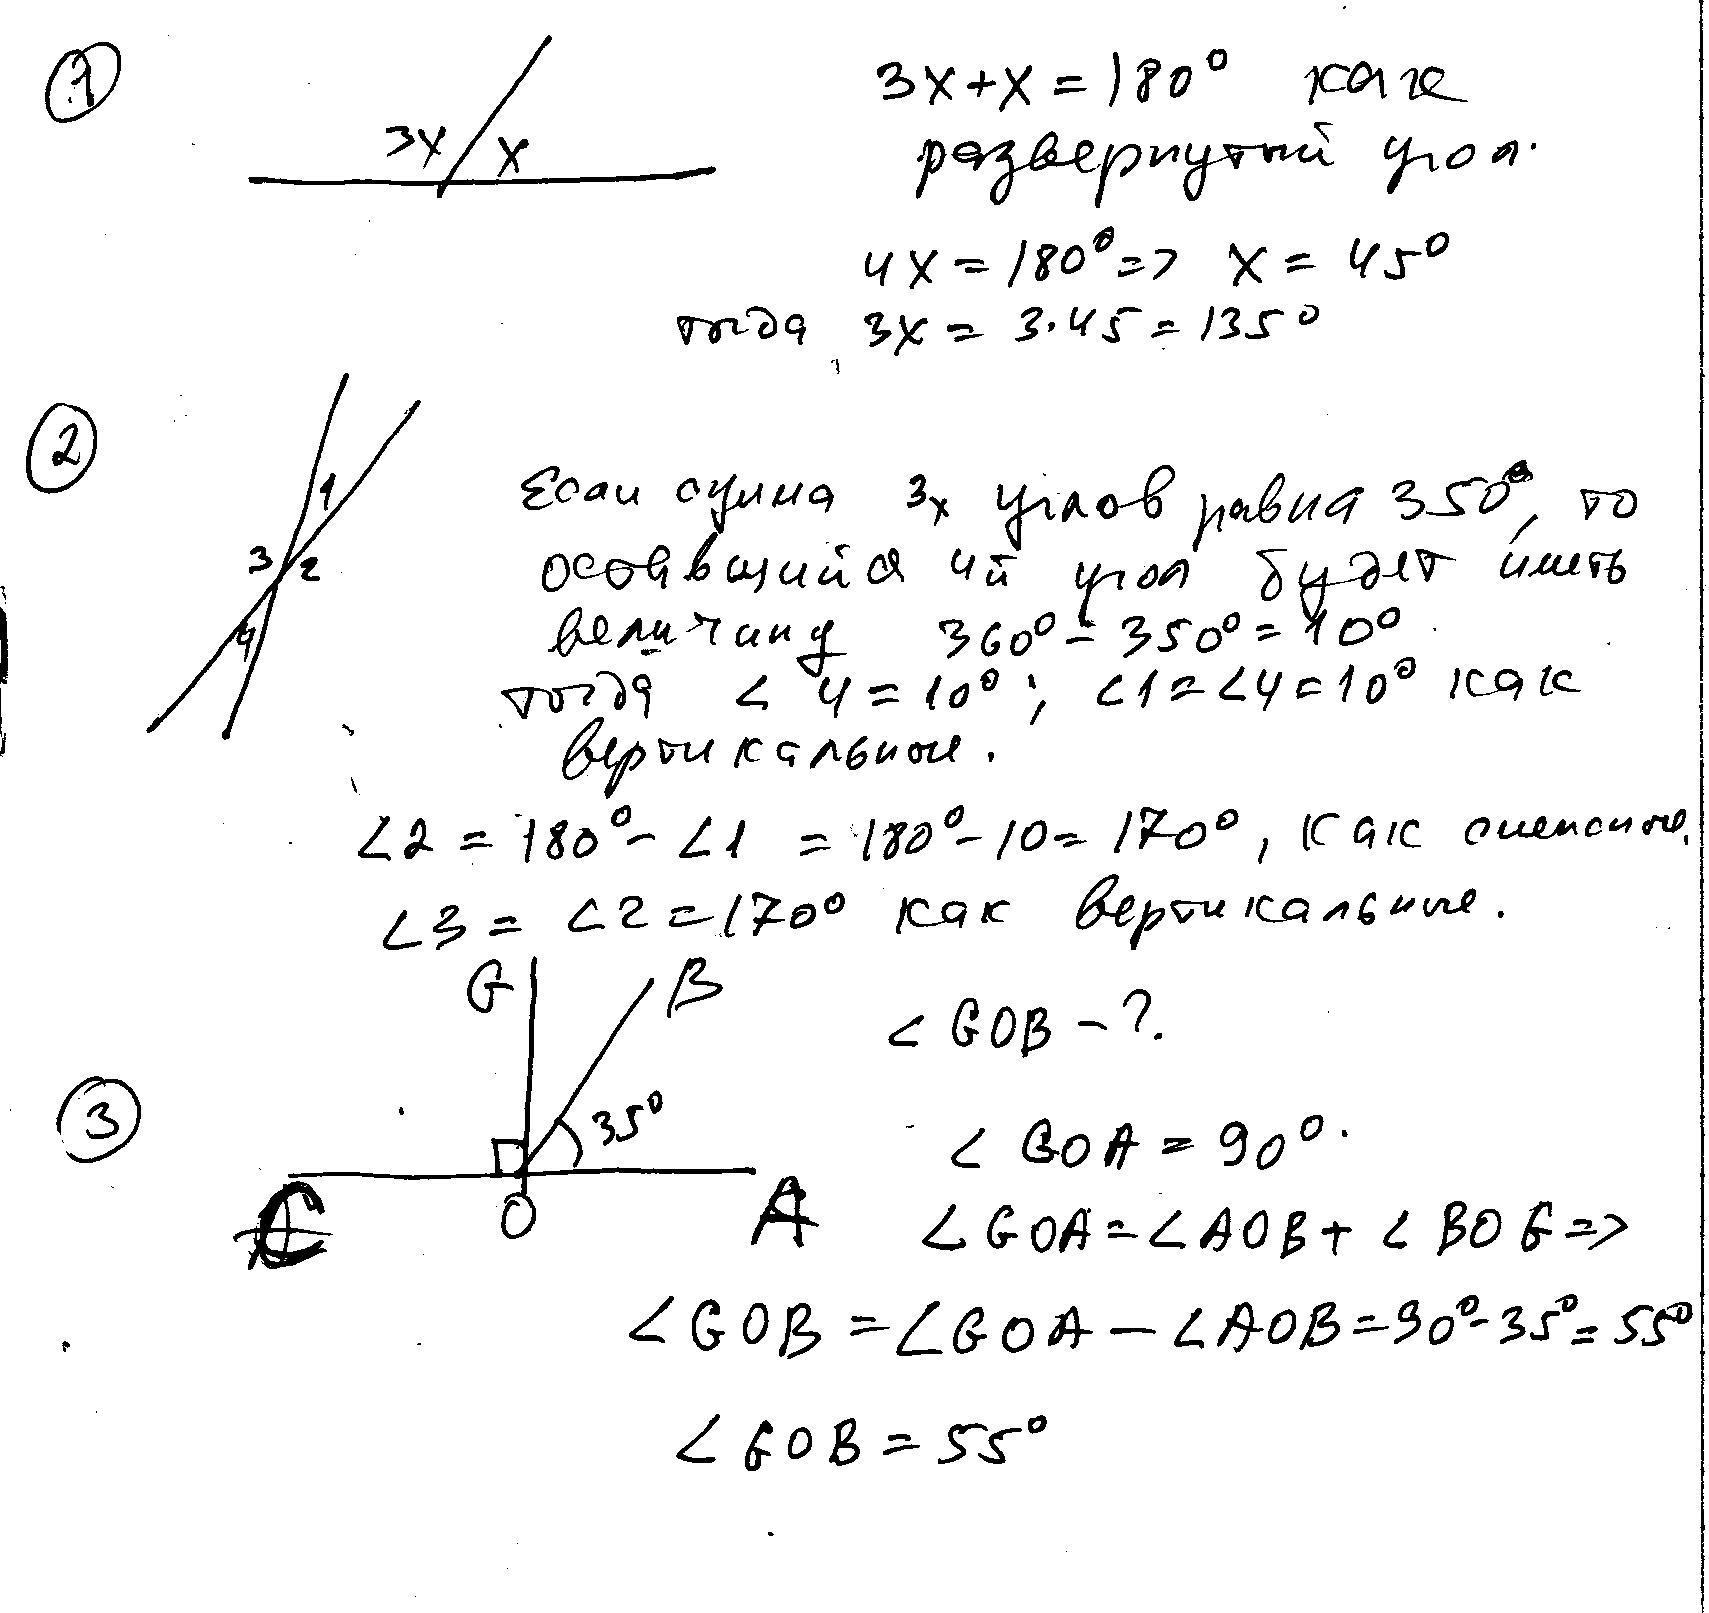 1
3x + x = 180° как
3x x
развернутый угол.
4x = 180° => x = 45°
тогда 3x = 3·45 = 135°
2
1
Если сумма 3х углов равна 350°, то
3 2
оставшийся 4й угол будет иметь
4
величину 360° - 350° = 10°
тогда ∠4 = 10°; ∠1 = ∠4 = 10° как
вертикальные.
∠2 = 180° - ∠1 = 180° - 10 = 170°, как смежные.
∠3 = ∠2 = 170° как вертикальные.
G B
∠GOB - ?
3
35°
∠GOA = 90°.
C O A
∠GOA = ∠AOB + ∠BOG =>
∠GOB = ∠GOA - ∠AOB = 90° - 35° = 55°
∠GOB = 55°